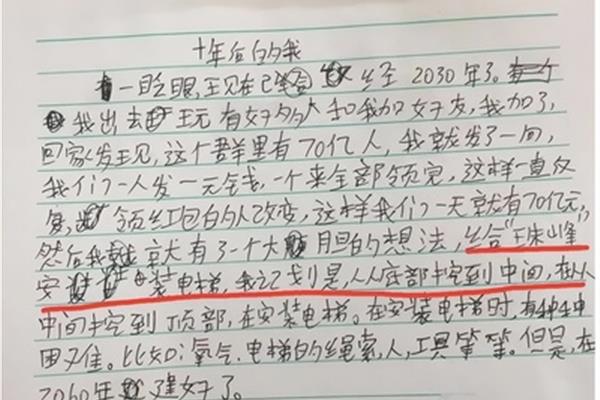 十年后的我
一眨眼,现在已经 2030年了。
我出去玩 有好多人和我加好友,我加了,
回家发现,这个群里有70亿人,我就发了一间,
我们一人发一元钱,一个来全部领完,这样一直反
复, 领红包的人改变,这样我们一天就有70亿元,
然后我就有了一个大胆的想法,给“珠峰”
安装电梯,我计划是,从底部挖到中间,在从
中间挖到顶部,在安装电梯。在安装电梯时,有种种
困难。比如:氧气、电梯的绳索,人,工具等等。但是,在
2060年 建好了。